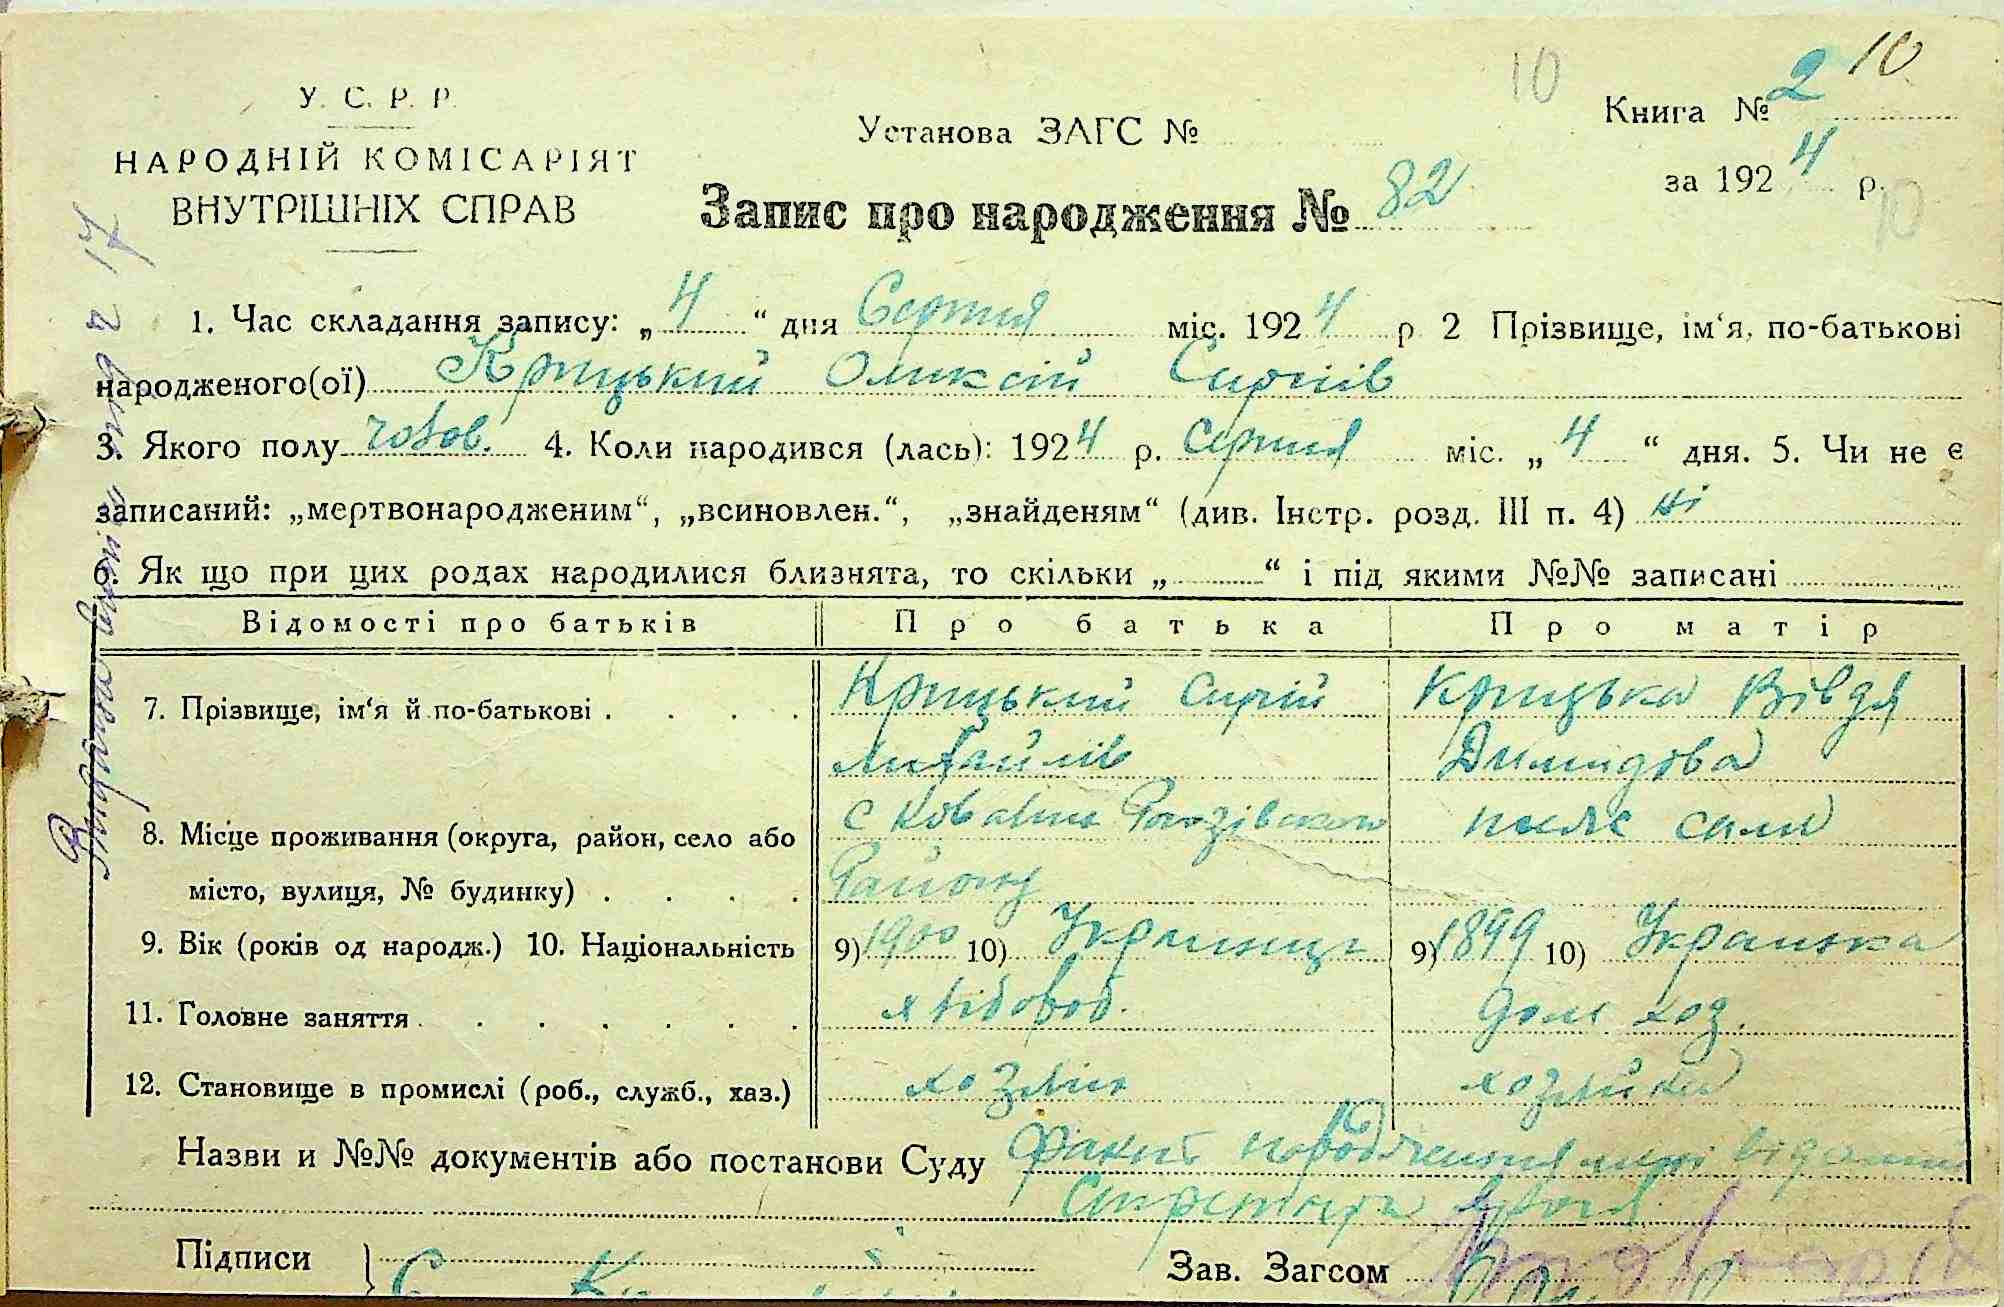 10
10
У. С. Р. Р.
НАРОДНІЙ КОМІСАРІЯТ
ВНУТРІШНІХ СПРАВ
Установа ЗАГС №
Книга № 2
за 1924 р.
10
Запис про народження № 82
1. Час складання запису: „4“ дня Серпня міс. 1924 р 2 Прізвище, ім‘я, по-батькові
народженого(ої) Крицький Оликсій Сиргіів
3. Якого полу чолов. 4. Коли народився (лась): 1924 р. Серпня міс. „4“ дня. 5. Чи не є
записаний: „мертвонародженим“, „всиновлен.“, „знайденям“ (див. Інстр. розд. III п. 4) ні
6. Як що при цих родах народилися близнята, то скільки „ “ і під якими №№ записані
Відомості про батьків Про батька Про матір
7. Прізвище, ім‘я й по-батькові . . . . Крицький Сиргій Крицька Вівдя
Михайлів Димидова
8. Місце проживання (округа, район, село або с Ковалин тоже сами
місто, вулиця, № будинку) . . . . Району
9. Вік (років од народж.) 10. Національність 9) 1900 10) Украинць 9) 1899 10) Украинка
11. Головне заняття . . . . . . . хлібороб. дом. хоз.
12. Становище в промислі (роб., служб., хаз.) хозяін хозяйка
Назви и №№ документів або постанови Суду Факт народження
Підписи } Зав. Загсом